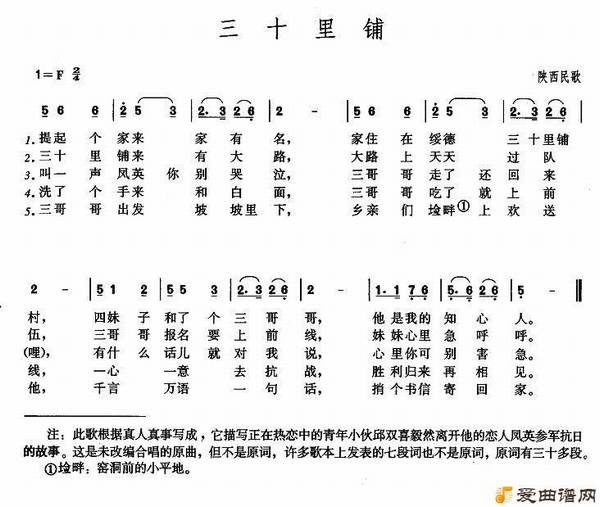 三十里铺
1=F 2/4
陕西民歌
5 6 6 | 2 5 3 | 2. 3 2 6 | 2 - | 5 6 6 | 2 5 3 | 2. 3 2 6 |
1.提起个家来 家有名, 家住在绥德 三十里铺
2.三十里铺来 有大路, 大路上天天 过队
3.叫一声凤英你别哭泣, 三哥哥走了还回来
4.洗了个手来 和白面, 三哥哥吃了就上前
5.三哥哥出发 坡坡里下, 乡亲们垃畔①上欢送
2 - | 5 1 2 | 5 5 5 | 2. 3 2 6 | 2 - | 1. 1 7 6 | 5. 6 2 6 | 5 - ‖
村, 四妹子和了个三哥哥, 他是我的知心人。
伍, 三哥哥报名要上前线, 妹妹心里急呼呼。
(哩), 有什么话儿就对我说, 心里你可别害急。
线, 一心一意去抗战, 胜利归来再相见。
他, 千言万语一句话, 捎个书信寄回家。
注:此歌根据真人真事写成,它描写正在热恋中的青年小伙邱双喜毅然离开他的恋人凤英参军抗日
的故事。这是未改编合唱的原曲,但不是原词,许多歌本上发表的七段词也不是原词,原词有三十多段。
①垃畔:窑洞前的小平地。
爱曲谱网